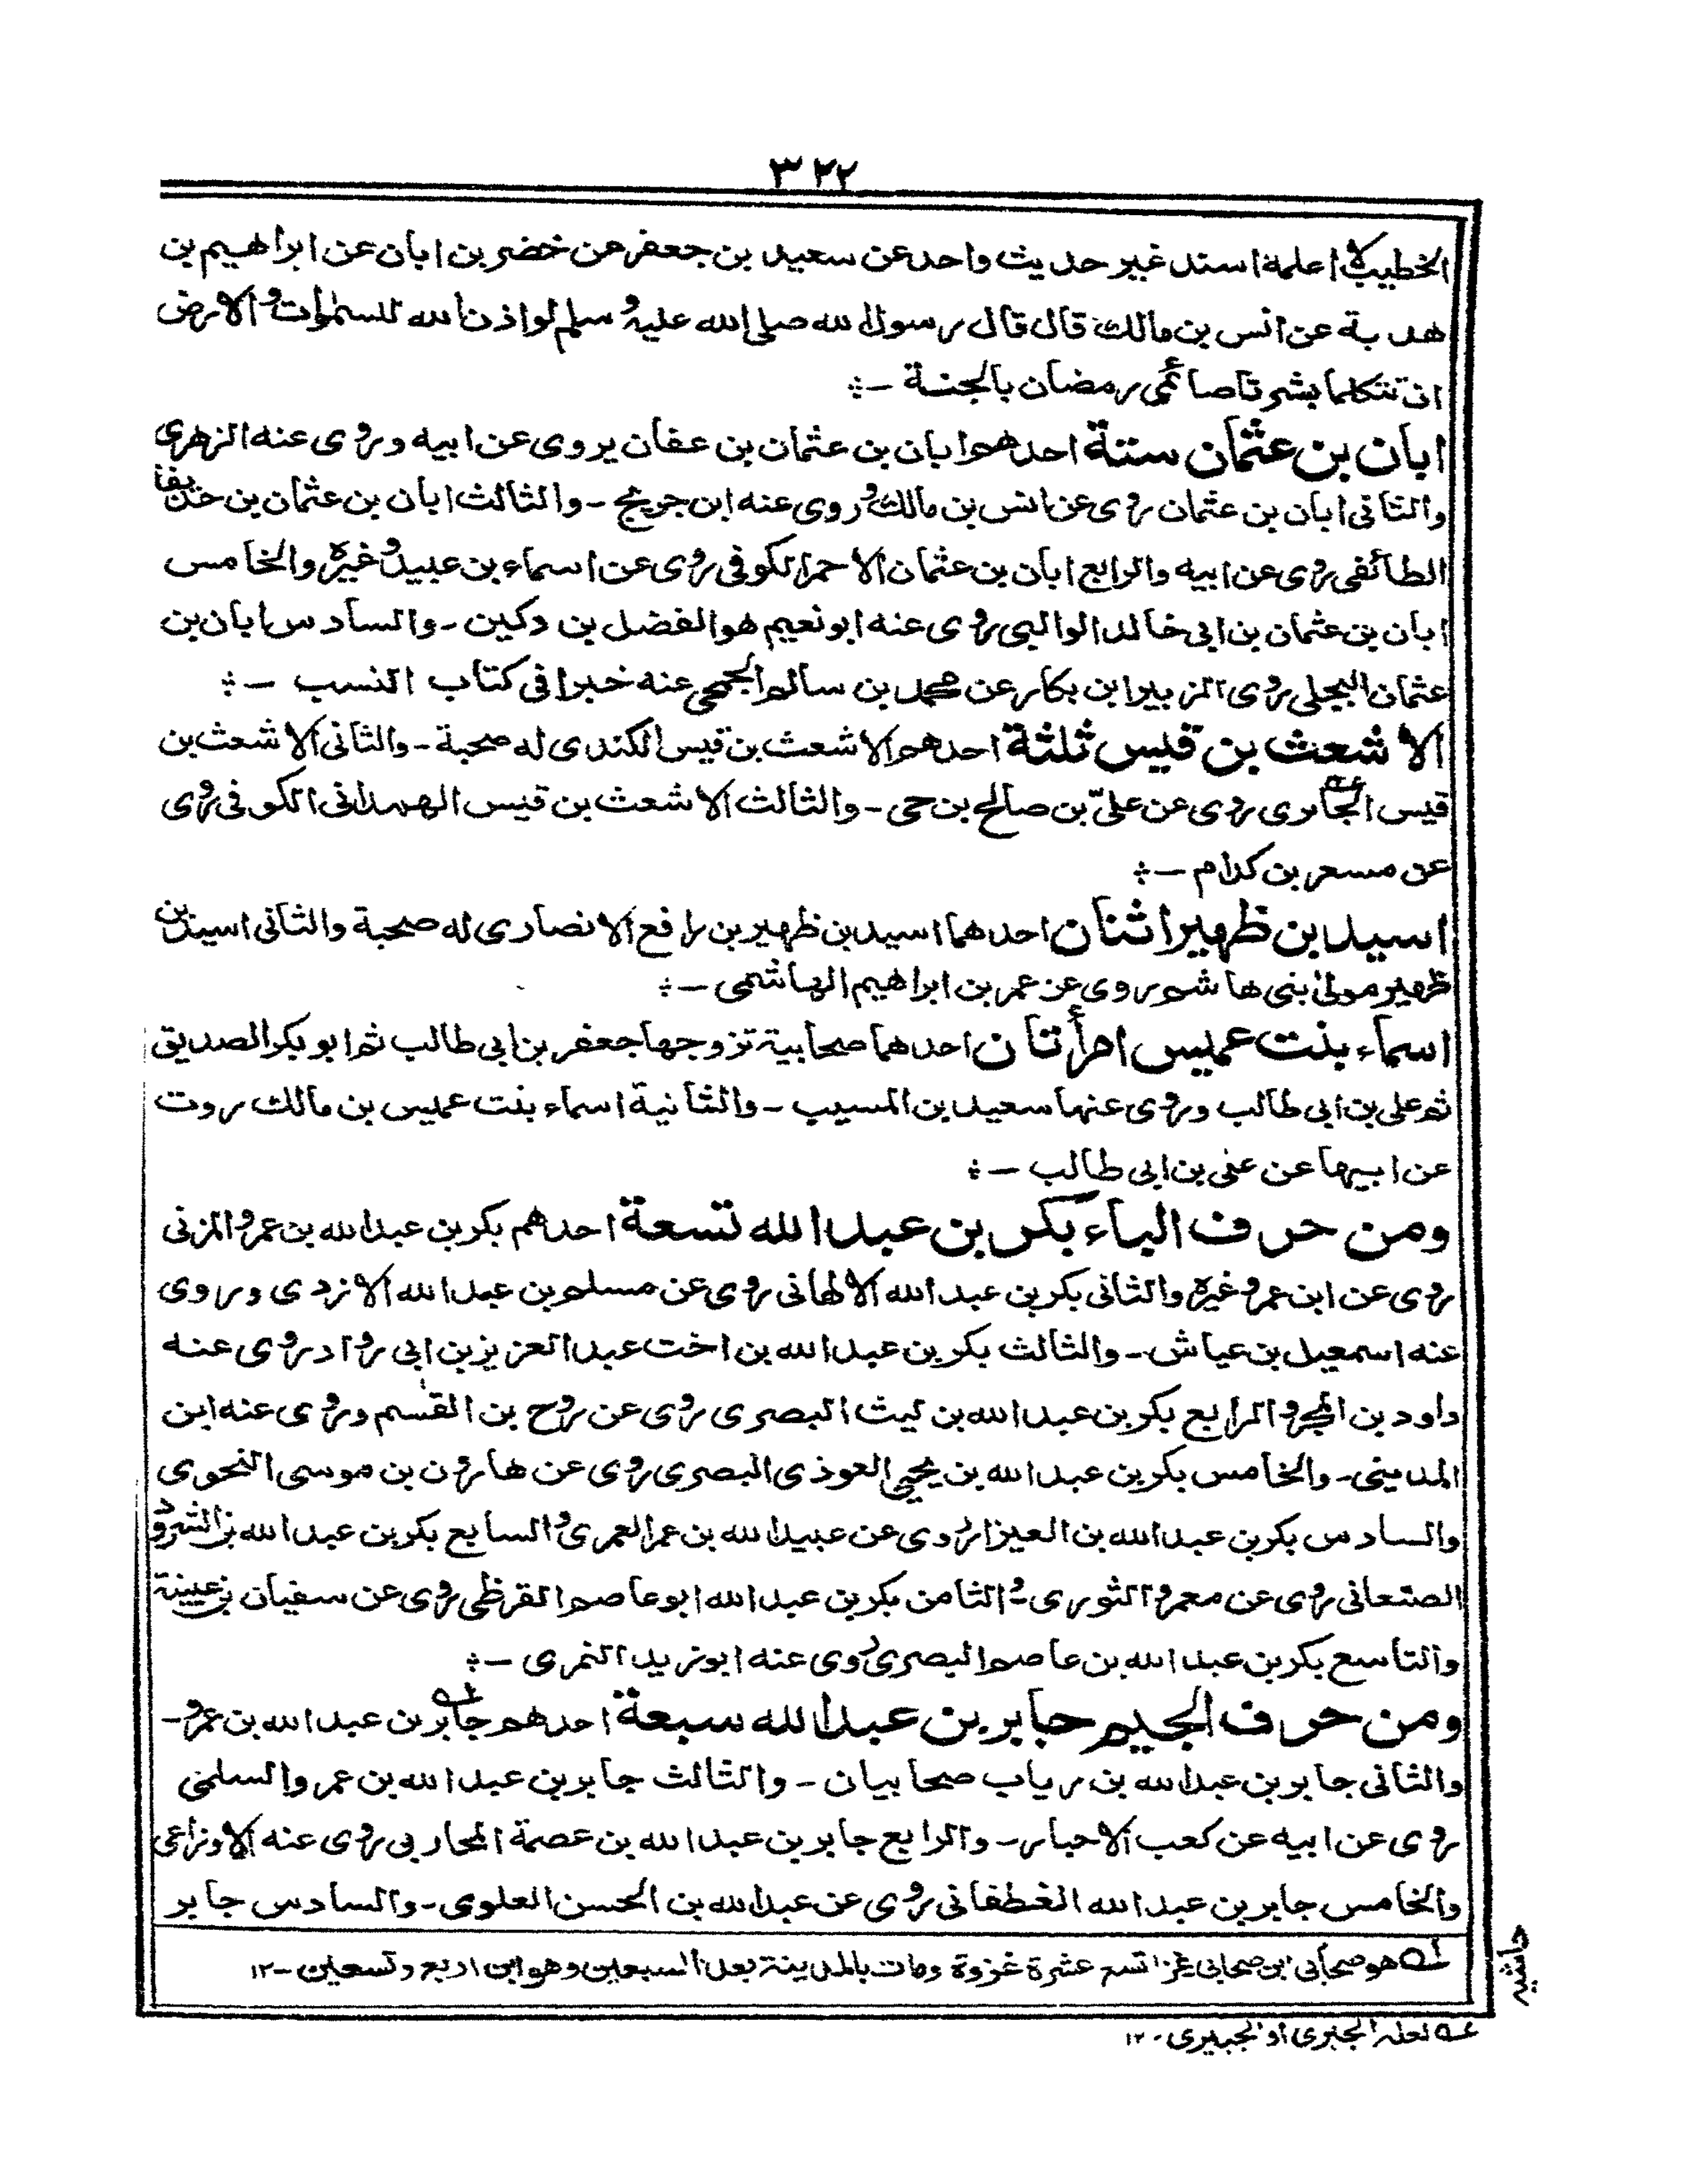 ٣٢٢
الخطيب لا اعلمه اسند غير حديث واحد عن سعيد بن جعفر عن خضر بن ابان عن ابراهيم بن
هدبة عن انس بن مالك قال قال رسول الله صلى الله عليه وسلم لو اذن الله للسموات والارض
ان تتكلما بشرتا صائمى رمضان بالجنة -
ابان بن عثمان ستة احدهم ابان بن عثمان بن عفان يروى عن ابيه وروى عنه الزهرى
والثانى ابان بن عثمان روى عن انس بن مالك وروى عنه ابن جريج - والثالث ابان بن عثمان بن حذيفة
الطائفى روى عن ابيه والرابع ابان بن عثمان الاحمر الكوفى روى عن اسماء بن عبيد وغيره والخامس
ابان بن عثمان بن ابى خالد الوالبى روى عنه ابو نعيم هو الفضل بن دكين - والسادس ابان بن
عثمان البجلى روى الزبير ابن بكار عن محمد بن سالم الجمحى عنه خبرا فى كتاب النسب -
الاشعث بن قيس ثلثة احدهم الاشعث بن قيس الكندى له صحبة - والثانى الاشعث بن
قيس الجابرى روى عن على بن صالح بن حى - والثالث الاشعث بن قيس الهمدانى الكوفى روى
عن مسعر بن كدام -
اسيد بن ظهير اثنان احدهما اسيد بن ظهير بن رافع الانصارى له صحبة والثانى اسيد بن
ظهير مولى بنى هاشم روى عن عمر بن ابراهيم الهاشمى -
اسماء بنت عميس امرأتان احدهما صحابية تزوجها جعفر بن ابى طالب ثم ابو بكر الصديق
ثم على بن ابى طالب وروى عنها سعيد بن المسيب - والثانية اسماء بنت عميس بن مالك روت
عن ابيها عن على بن ابى طالب -
ومن حرف الباء بكر بن عبد الله تسعة احدهم بكر بن عبد الله بن عمرو المزنى
روى عن ابن عمر وغيره والثانى بكر بن عبد الله الالهانى روى عن مسلم بن عبد الله الازدى وروى
عنه اسمعيل بن عياش - والثالث بكر بن عبد الله بن اخت عبد العزيز بن ابى رواد روى عنه
داود بن المحبر والرابع بكر بن عبد الله بن ليث البصرى روى عن روح بن القسم وروى عنه ابن
المدينى - والخامس بكر بن عبد الله بن يحيى العوذى البصرى روى عن هارون بن موسى النحوى
والسادس بكر بن عبد الله بن العيزار روى عن عبيد الله بن عمر العمرى والسابع بكر بن عبد الله بن الشرود
الصنعانى روى عن معمر والثورى والثامن بكر بن عبد الله ابو عاصم القرظى روى عن سفيان بن عيينة
والتاسع بكر بن عبد الله بن عاصم البصرى روى عنه ابو زيد النمرى -
ومن حرف الجيم جابر بن عبد الله سبعة احدهم جابر بن عبد الله بن عمرو -
والثانى جابر بن عبد الله بن رياب صحابيان - والثالث جابر بن عبد الله بن عمرو السلمى
روى عن ابيه عن كعب الاحبار - والرابع جابر بن عبد الله بن عصمة المحاربى روى عنه الاوزاعى
والخامس جابر بن عبد الله الغطفانى روى عن عبد الله بن الحسن العلوى - والسادس جابر
حاشيه
له هو صحابى ابن صحابى غزا تسع عشرة غزوة ومات بالمدينة بعد السبعين وهو ابن اربع وتسعين - ١٢
عه لعله الجنبرى او الجبيرى - ١٢